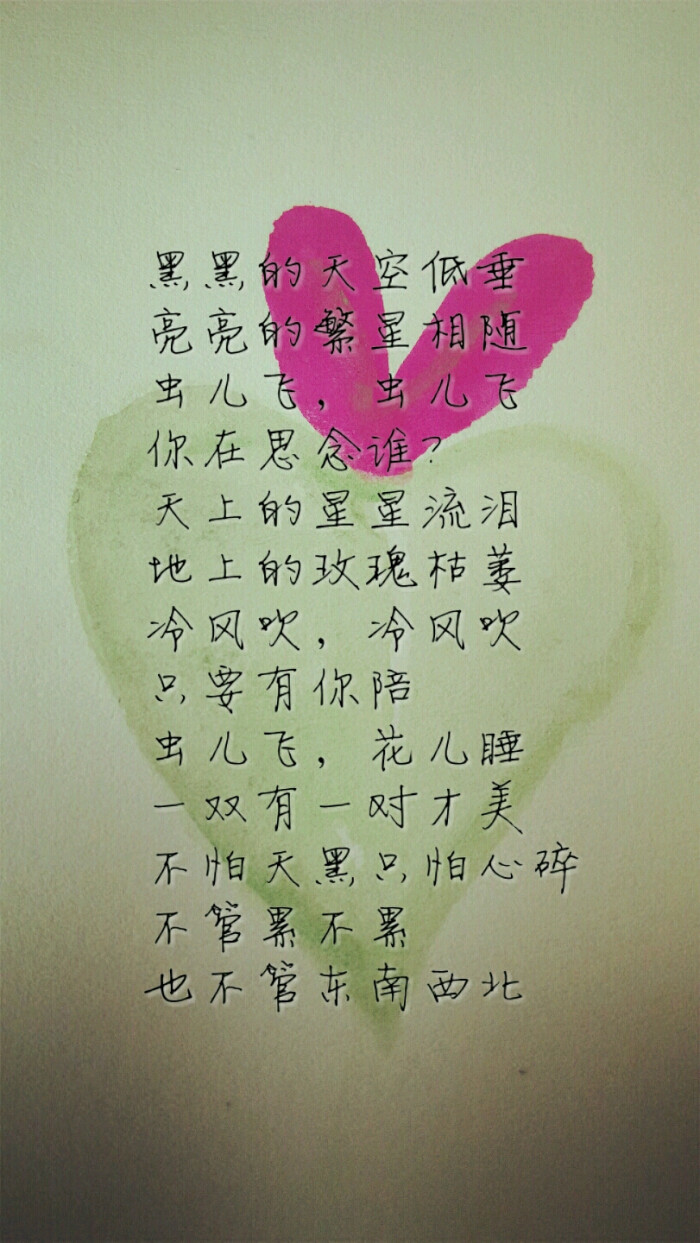 黑黑的天空低垂
亮亮的繁星相随
虫儿飞，虫儿飞
你在思念谁？
天上的星星流泪
地上的玫瑰枯萎
冷风吹，冷风吹
只要有你陪
虫儿飞，花儿睡
一双有一对才美
不怕天黑只怕心碎
不管累不累
也不管东南西北